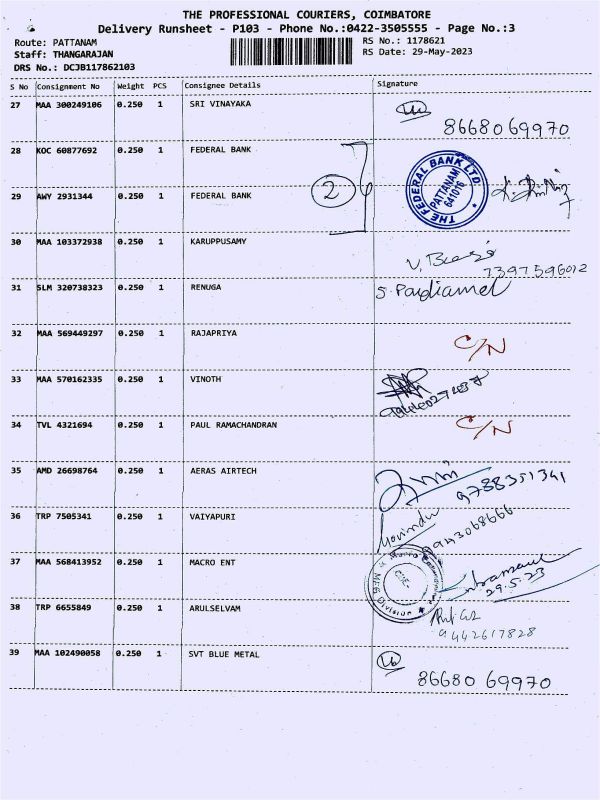 THE PROFESSIONAL COURIERS, COIMBATORE
Delivery Runsheet - P103 - Phone No.:0422-3505555 - Page No.:3
Route: PATTANAM RS No.: 1178621
Staff: THANGARAJAN RS Date: 29-May-2023
DRS No.: DCJB117862103
S No Consignment No Weight PCS Consignee Details Signature
27 MAA 300249106 0.250 1 SRI VINAYAKA
8668069970
28 KOC 60877692 0.250 1 FEDERAL BANK
THE FEDERAL BANK LTD.
PATTANAM
641016
2
29 AWY 2931344 0.250 1 FEDERAL BANK
30 MAA 103372938 0.250 1 KARUPPUSAMY
7397596012
31 SLM 320738323 0.250 1 RENUGA
32 MAA 569449297 0.250 1 RAJAPRIYA C/N
33 MAA 570162335 0.250 1 VINOTH
34 TVL 4321694 0.250 1 PAUL RAMACHANDRAN C/N
35 AMD 26698764 0.250 1 AERAS AIRTECH
9788351341
36 TRP 7505341 0.250 1 VAIYAPURI Govindu
9443068666
37 MAA 568413952 0.250 1 MACRO ENT
29.5.23
MFG Division
38 TRP 6655849 0.250 1 ARULSELVAM
9442617828
39 MAA 102490058 0.250 1 SVT BLUE METAL
8668069970